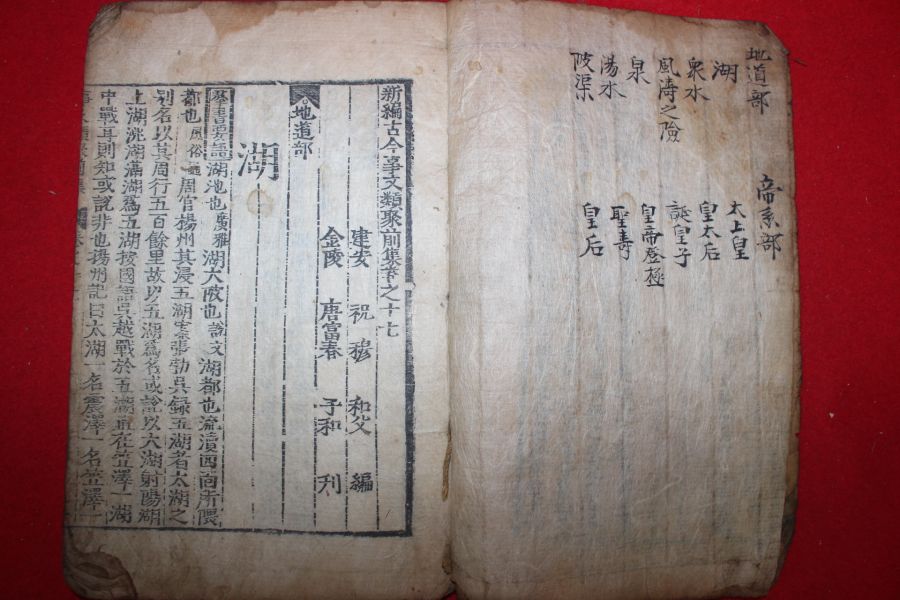 地道部
湖
衆水
風濤之險
泉
湯水
陂渠
帝系部
太上皇
皇太后
誕皇子
皇帝登極
聖壽
皇后
新編古今事文類聚前集卷之十七
建安 祝 穆 和父 編
金陵 唐富春 子和 刋
地道部
湖
羣書要語湖池也廣雅湖大陂也說文湖都也流瀆四面所隈
都也風俗通周官揚州其浸五湖案張勃吳録五湖者太湖之
別名以其周行五百餘里故以五湖爲名或說以大湖射陽湖
上湖洮湖滆湖爲五湖按國語吳越戰於五湖直在笠澤一湖
中戰耳則知或說非也揚州記曰太湖一名震澤一名笠澤一